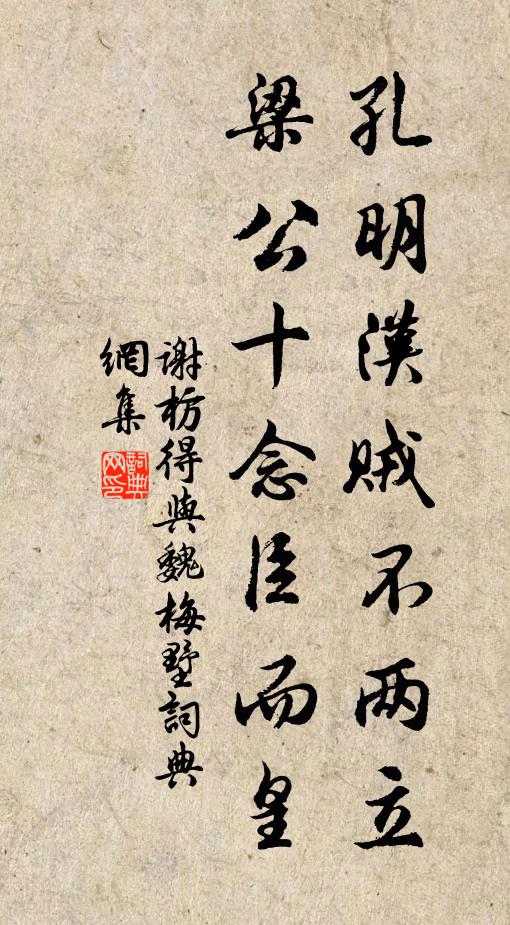 孔明漢賊不两立
梁公十念臣而皇
谢枋得與魏梅墅詞典
網集
詞典
网印